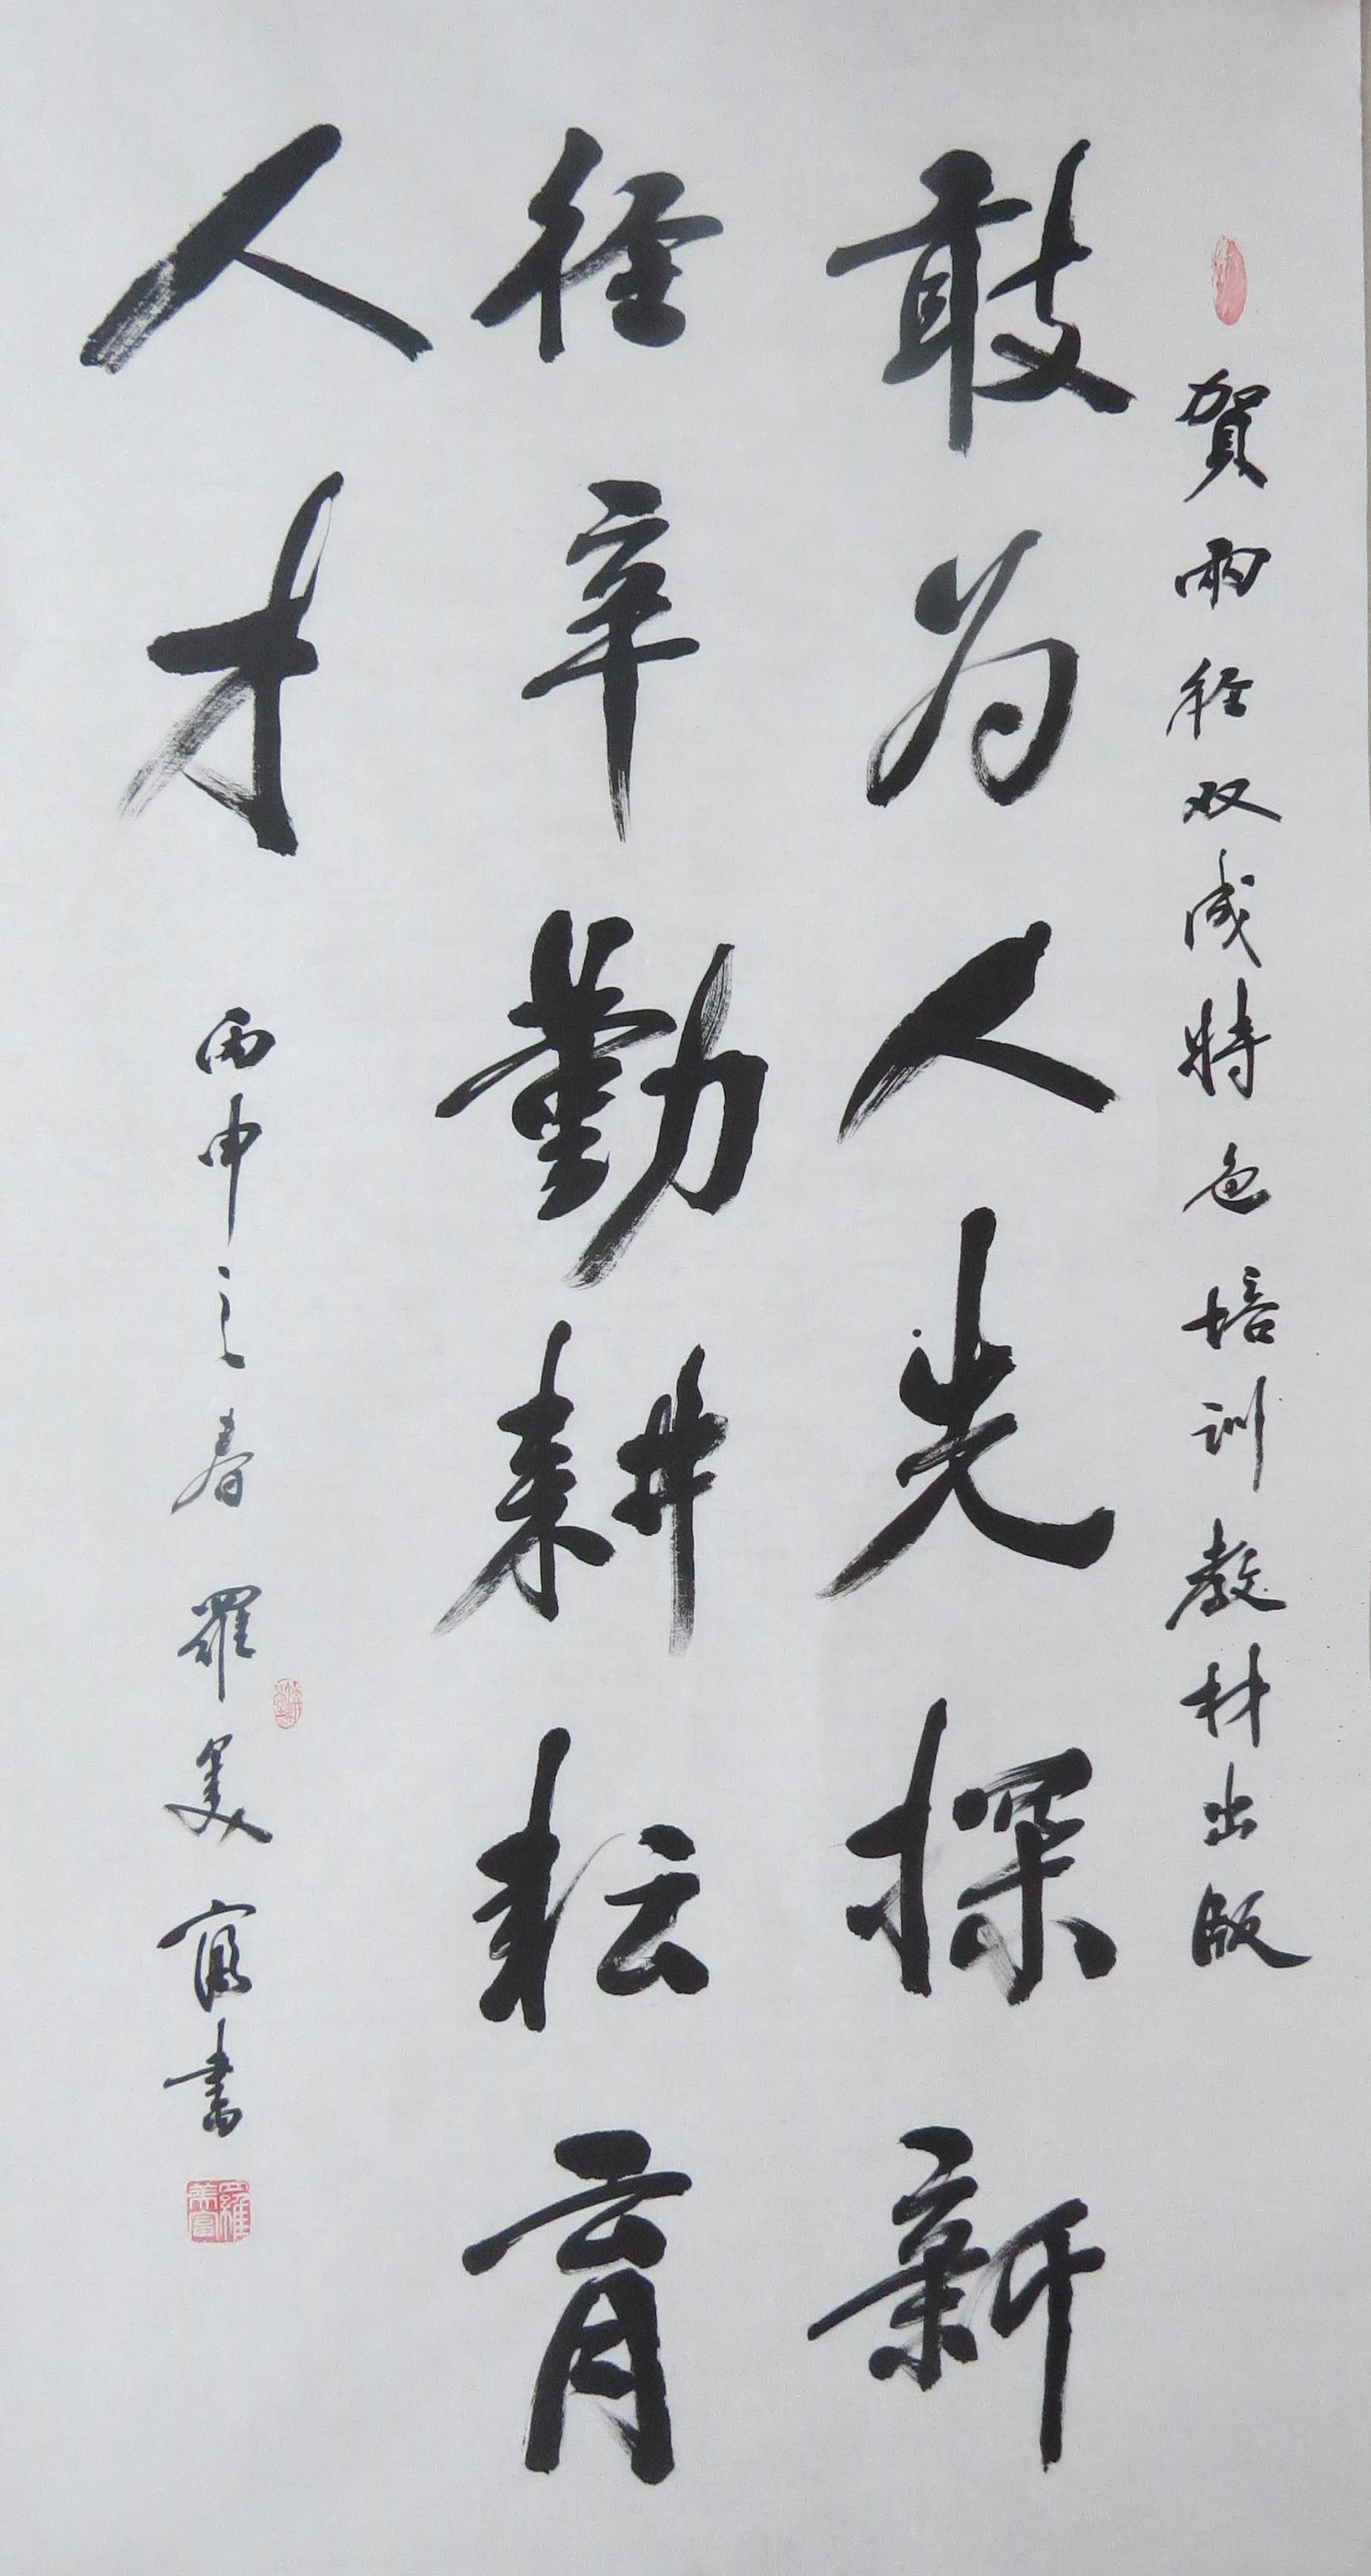 賀兩径双成特色培训教材出版
敢为人先探新
径辛勤耕耘育
人才
丙申之春 羅美富書
羅美富